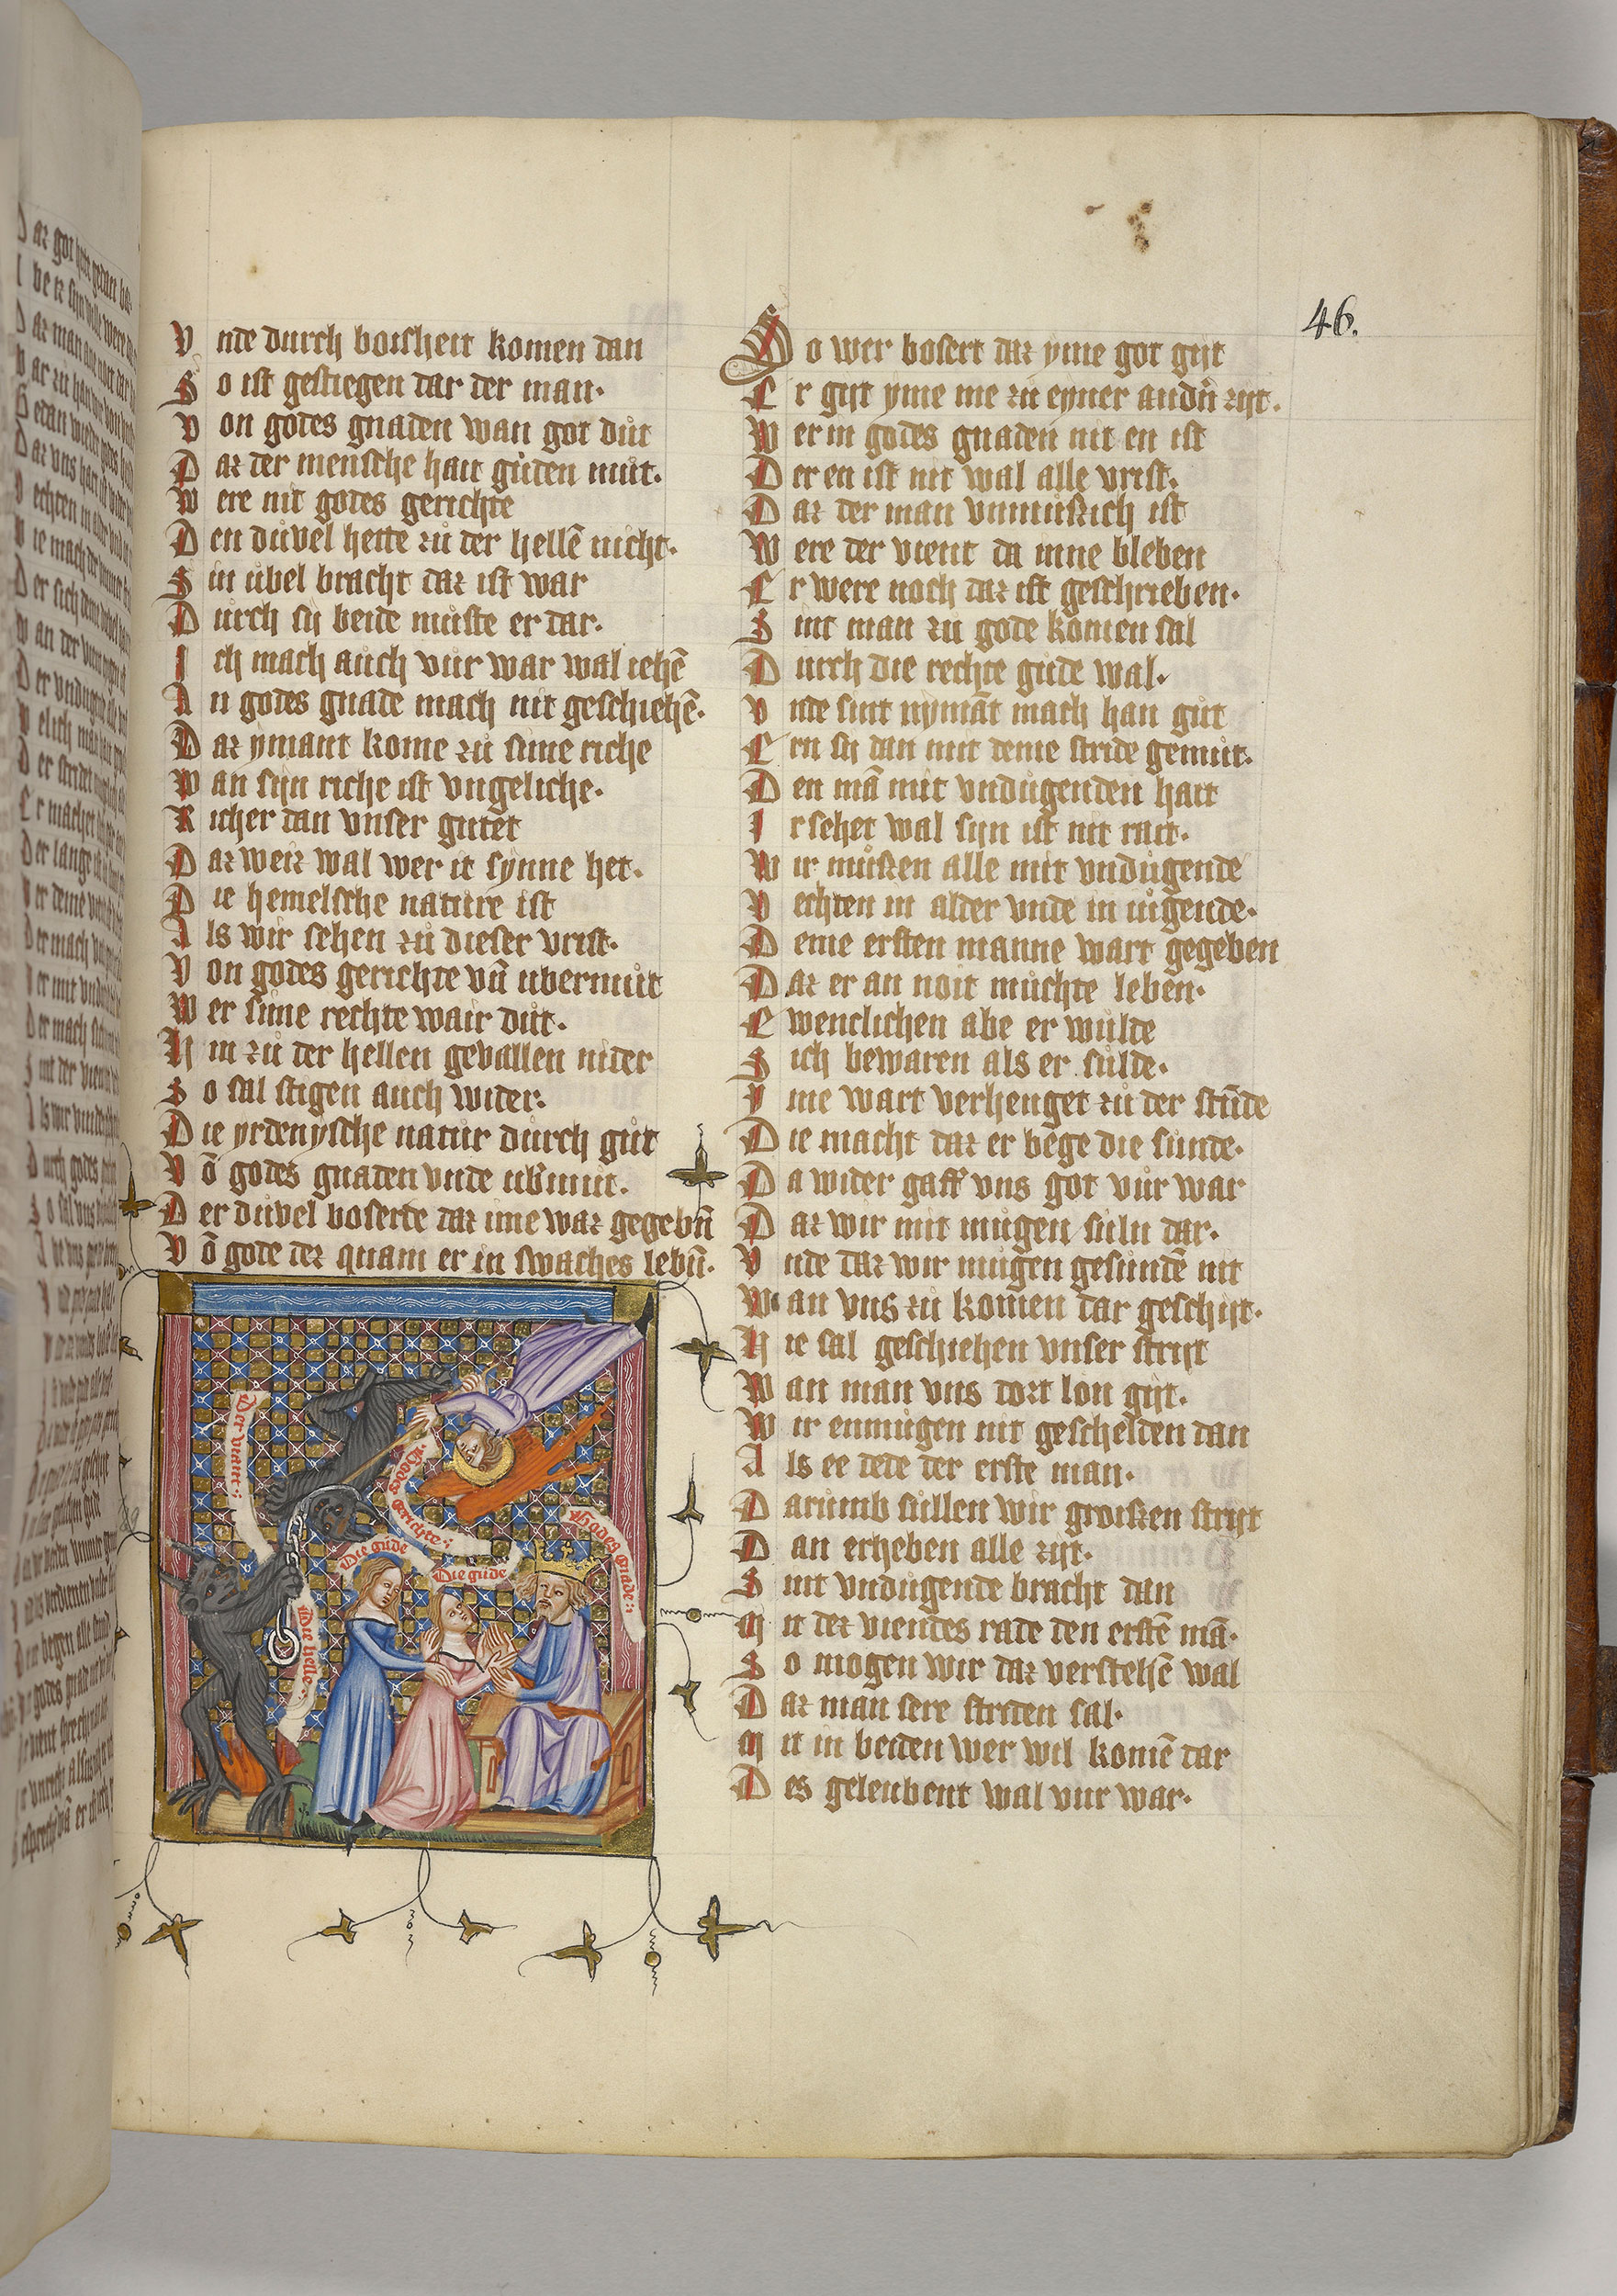 46.
V nde durch boisheit komen dan
S o ist gestiegen dar der man·
V on godes gnaden wan got důt
D az der mensche hait gůden můt·
W ere nit godes gerichte
D en důvel hette zů der hellē nicht·
S in ůbel bracht daz ist war
D urch sij beide můste er dar·
I ch mach auch vůr war wal iehē
A n godes gnade mach nit geschiehē·
D az ymant kome zů sime riche
W an sijn riche ist vngeliche·
R icher dan vnser gůtet
D az weiz wal wer it synne het·
D ie hemelsche natůre ist
A ls wir sehen zů dieser vrist·
V on godes gerichte vn̄ ubermůt
W er sime rechte wair důt·
H in zů der hellen gevallen nider
S o sal stigen auch wider·
D ie yrdenysche natůr důrch gůt
V ō godes gnaden vnde ub'můt·
D er důvel boserte daz ime waz gegebn̄
V ō gode dez quam er in swaches lebn̄·
Der viant
Godes gerichte
Die gude
Die gude
Godes gnade
Die helle
S o wer bosert daz yme got gijt
E r gijt yme me zů eyner and'n̄ zijt·
W er in godes gnaden nit en ist
D er en ist nit wal alle vrist·
D az der man vnmůßich ist
W ere der vient da inne bleben
E r were noch daz ist geschrieben·
S int man zů gode komen sal
D urch die rechte gůde wal·
V nde sint nymāt mach han gůt
E rn sij dan mit deme stride gemůt·
D en mā mit vndůgenden hait
I r sehet wal sijn ist nit rait·
W ir můßen alle mit vndůgende
V echten in alder vnde in iůgende·
D eme ersten manne wart gegeben
D az er an noit můchte leben·
E wenclichen abe er wůlde
S ich bewaren als er sůlde·
I me wart verhenget zů der stūde
D ie macht daz er bēge die sůnde·
D a wider gaff vns got vůr war
D az wir mit můgen sůln dar·
V nde daz wir můgen gesůndē nit
W an vns zů komen dar geschijt·
H ie sal geschiehen vnser strijt
W an man vns dort lon gijt·
W ir enmůgen nit gescheiden dan
A ls ee dede der erste man·
D arůmb sůllen wir groißen strijt
D an erheben alle zijt·
S int vndůgende bracht dan
M it dez viendes rade den erstē mā·
S o mogen wir daz verstehē wal
D az man sere striden sal·
M it in beiden wer wil komē dar
D es geleubent wal vur war·